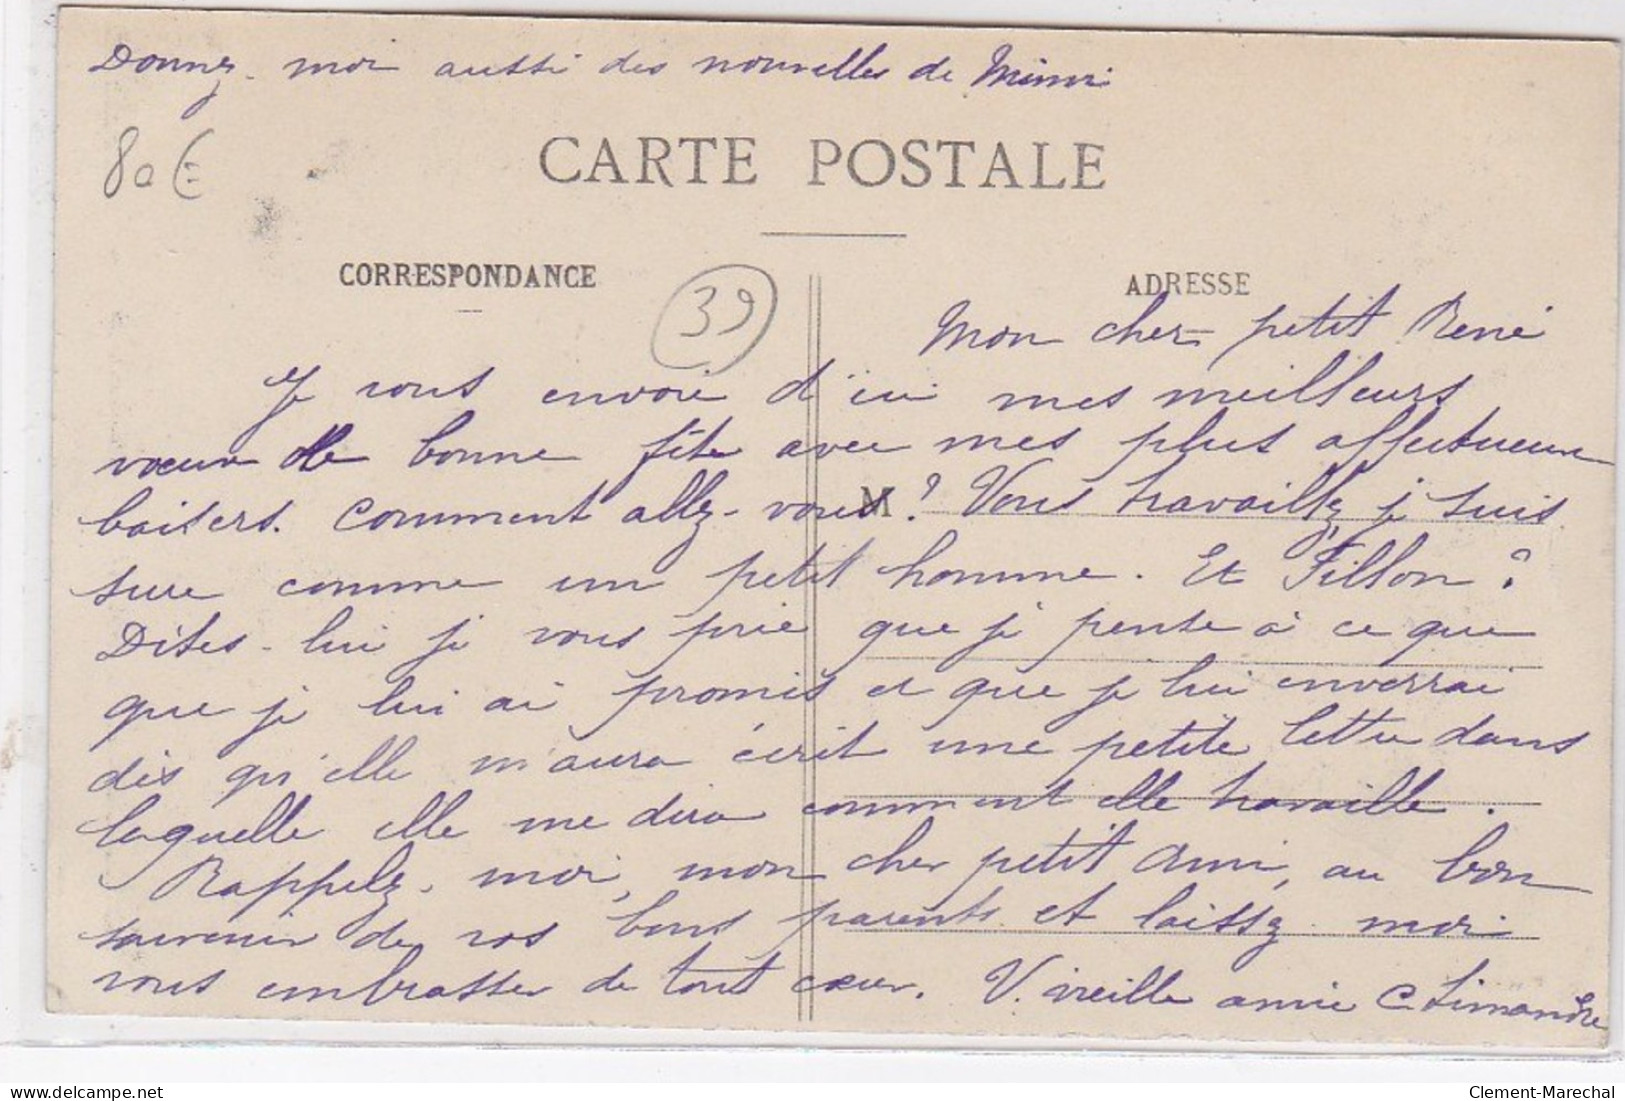 Donnez-moi aussi des nouvelles de Mimi
80€
CARTE POSTALE
CORRESPONDANCE
39
ADRESSE
Mon cher petit René
Je vous envoie d'ici mes meilleurs
vœux de bonne fête avec mes plus affectueux
baisers. Comment allez-vous? Vous travaillez, je suis
M
sure comme un petit homme. Et Fillon?
Dites-lui je vous prie que je pense à ce que
que je lui ai promis et que je lui enverrai
dès qu'elle m'aura écrit une petite lettre dans
laquelle elle me dira comment elle travaille.
Rappelez-moi, mon cher petit ami, au bon
souvenir de vos bons parents et laissez-moi
vous embrasser de tout cœur. V. vieille amie C.
Clement-Marechal